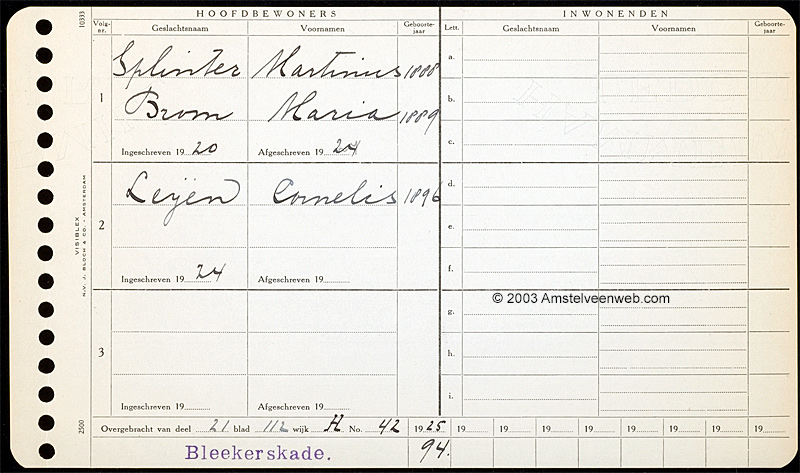 HOOFDBEWONERS
INWONENDEN
Volg-nr.
Geslachtsnaam
Voornamen
Geboorte-jaar
Lett.
Geslachtsnaam
Voornamen
Geboorte-jaar
10333
1
Splinter Martinus 1888
Brom Maria 1889
Ingeschreven 19 20 Afgeschreven 19 24
2
Leijen Cornelis 1896
Ingeschreven 19 24 Afgeschreven 19
3
Ingeschreven 19 Afgeschreven 19
a.
b.
c.
d.
e.
f.
g.
h.
i.
© 2003 Amstelveenweb.com
VISIBLEX
N.V. J. BLOCH & CO. - AMSTERDAM
2500
Overgebracht van deel 21 blad 112 wijk H No. 42 1925 19 19 19 19 19 19 19 19
Bleekerskade. 94.